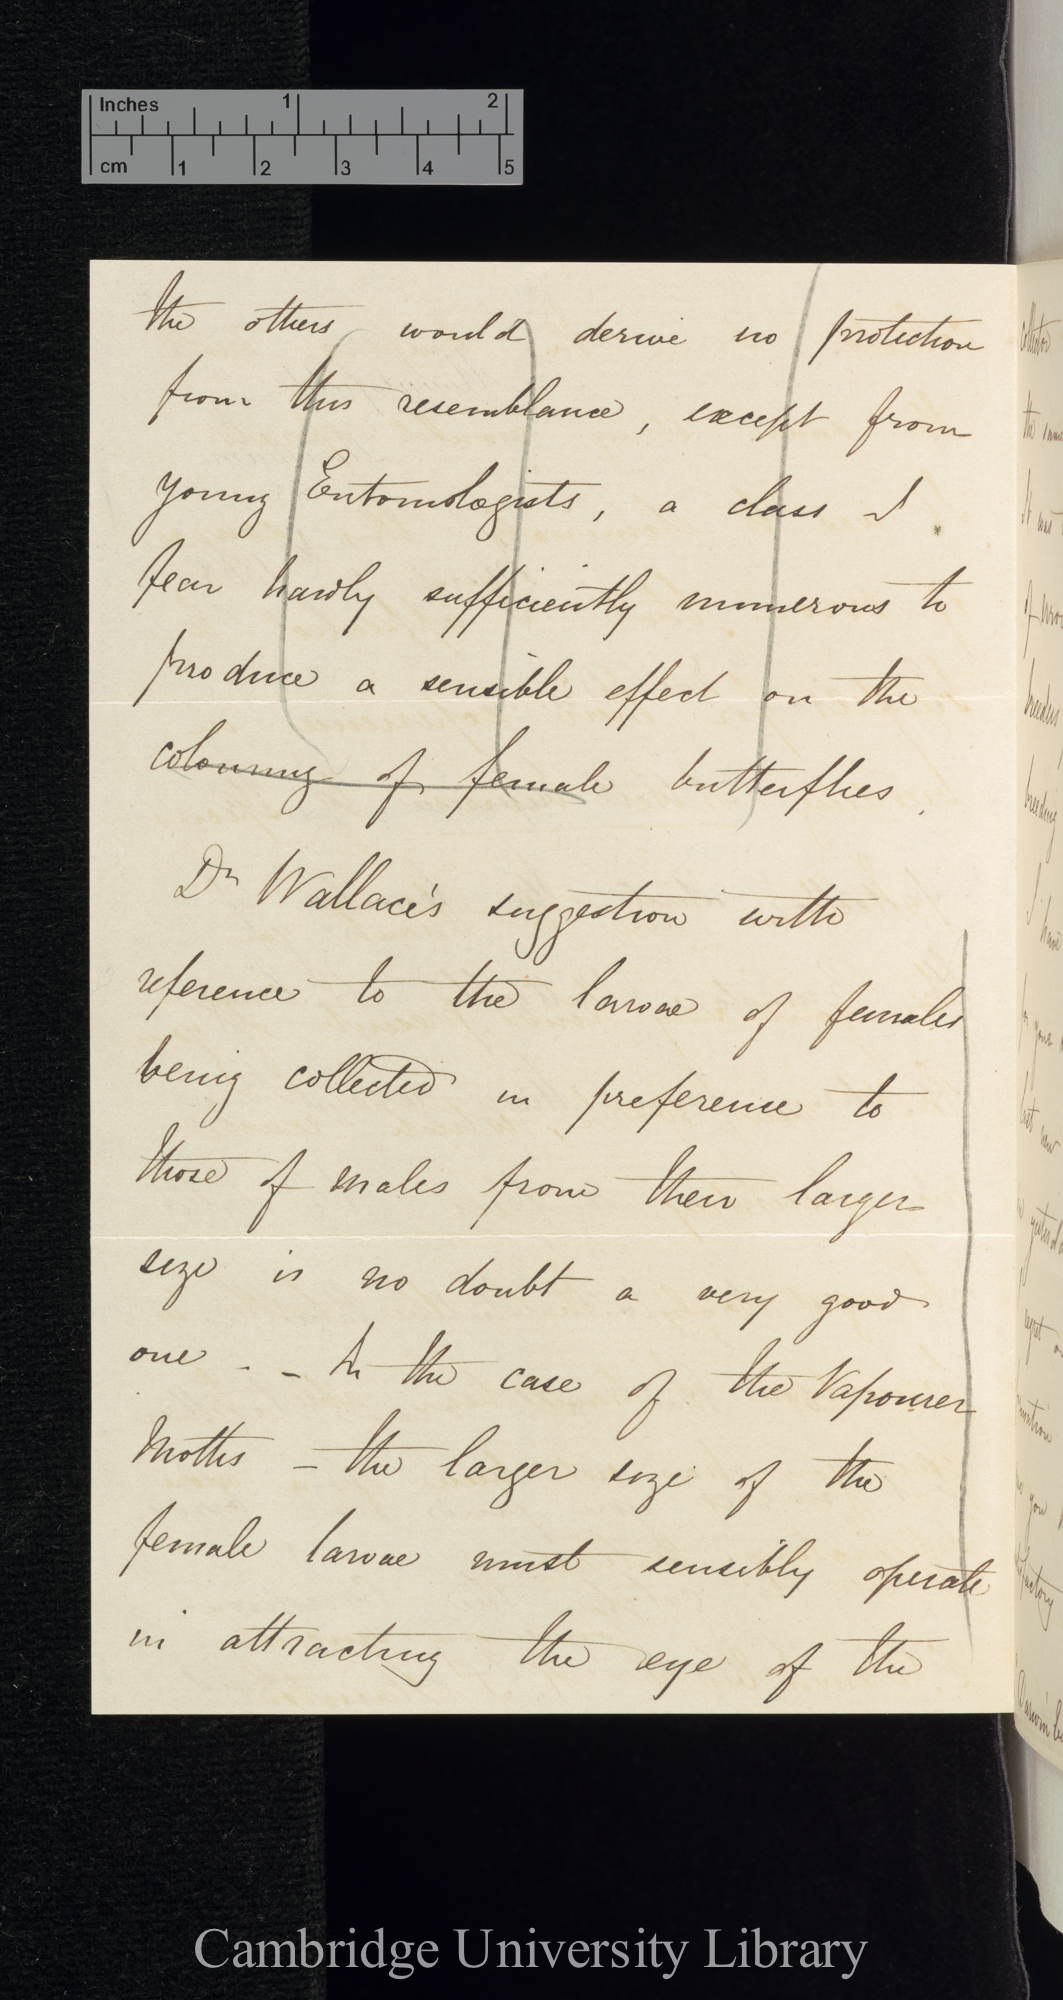 Inches 1 2
cm 1 2 3 4 5
the others would derive no protection
from this resemblance, except from
young Entomologists, a class I
fear hardly sufficiently numerous to
produce a sensible effect on the
colouring of female butterflies.
Dr Wallace's suggestion with
reference to the larvae of females
being collected in preference to
those of males from their larger
size is no doubt a very good
one. - In the case of the Vapourer
Moths - the larger size of the
female larvae must sensibly operate
in attracting the eye of the
collector
the
It was
breeders
breeding
I have
Cambridge University Library